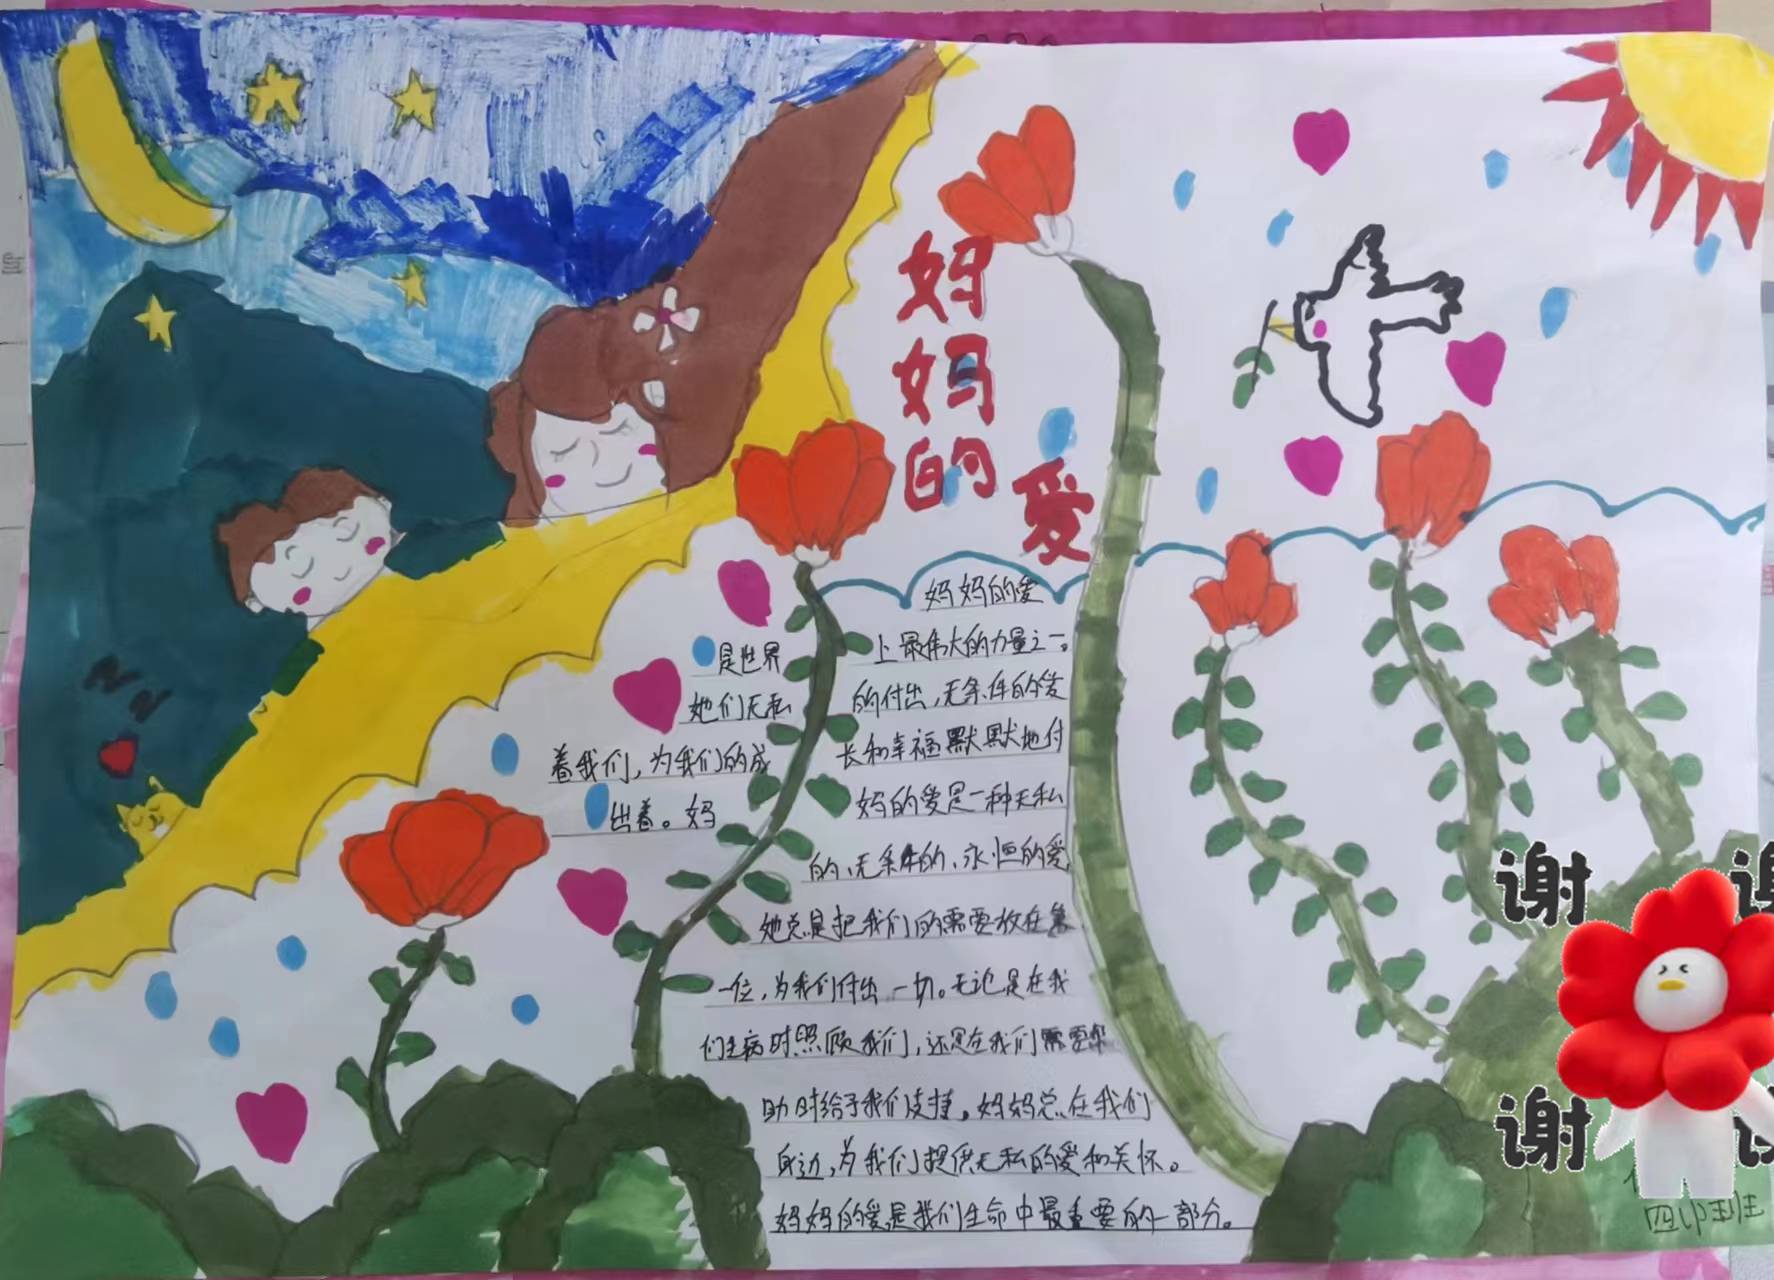 妈妈的爱
妈妈的爱
是世界上最伟大的力量之一。
她们无私的付出，无条件的爱
着我们，为我们的成长和幸福默默地付
出着。妈妈的爱是一种无私
的、无条件的、永恒的爱
她总是把我们的需要放在第
一位，为我们付出一切。无论是在我
们生病时照顾我们，还是在我们需要帮
助时给予我们支持。妈妈总在我们
身边，为我们提供无私的爱和关怀。
妈妈的爱是我们生命中最重要的一部分。
谢
谢